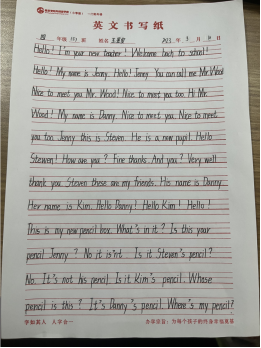 英文书写纸
年级 班 姓名 年 3 月 日
Hello! I'm your new teacher! Welcome back to school!
Hello! My name is Jenny. Hello! Jenny. You can call me Mr. Wood
Nice to meet you Mr. Wood! Nice to meet you too. Hi Mr.
Wood! My name is Danny. Nice to meet you. Nice to meet
you too. Jenny this is Steven. He is a new pupil. Hello
Steven! How are you? Fine thanks. And you? Very well
thank you. Steven these are my friends. His name is Danny.
Her name is Kim. Hello Danny! Hello Kim! Hello!
This is my new pencil box. What's in it? Is this your
pencil Jenny? No it isn't. Is it Steven's pencil?
No. It's not his pencil. Is it Kim's pencil. Whose
pencil is this? It's Danny's pencil. Where's my pencil?
字如其人 人字合一 为每个孩子的终身幸福奠基